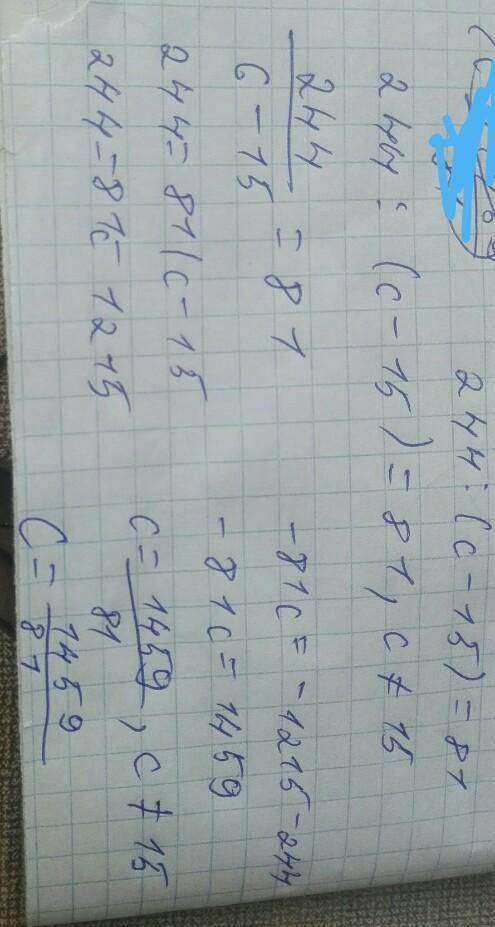 244:(c-15)=81
244:(c-15)=81, c≠15
244/c-15 = 81
244=81(c-15
244=81c-1215
-81c=-1215-244
-81c=1459
c=1459/81, c≠15
C=1459/81